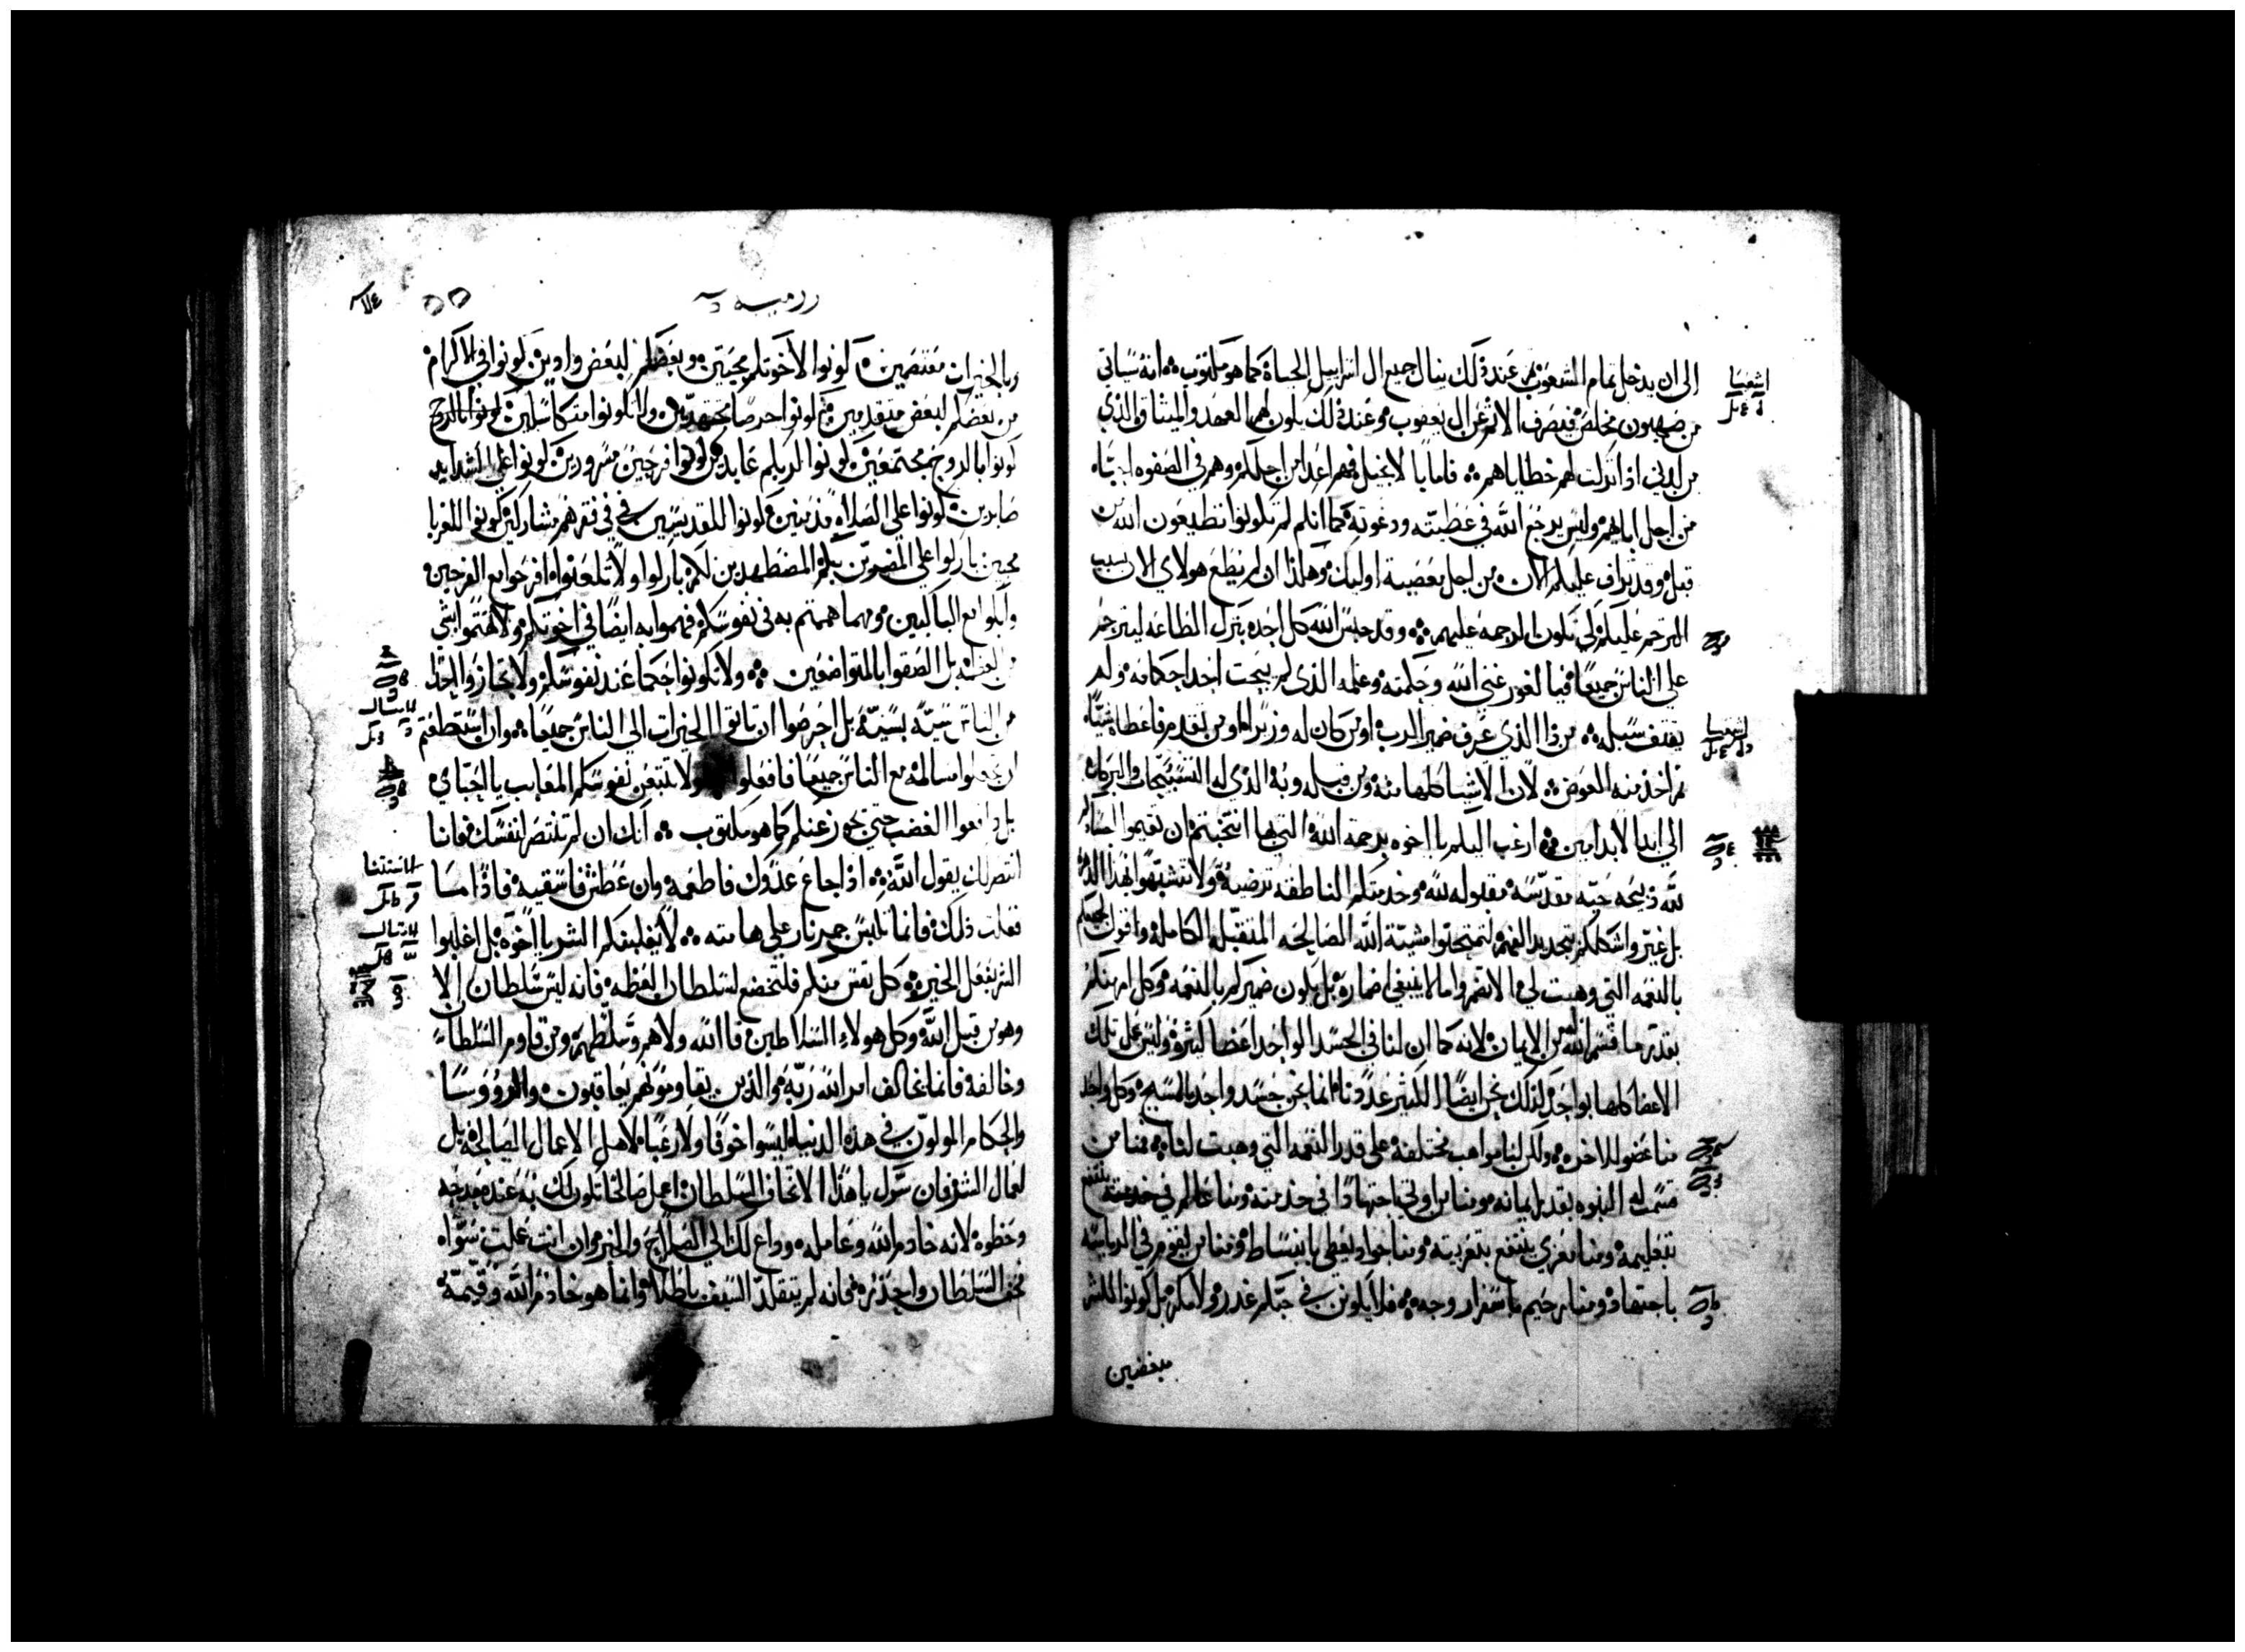 الى ان يدخل تمام الشعوب وعند ذلك ينال جميع ال اسراييل الحياة كما هو مكتوب انه سياتي
من صهيون مخلص فيصرف الاثم عن ال يعقوب وعند ذلك يكون لهم العهد والميثاق الذي
من لدني اذا تركت لهم خطاياهم فاما بالانجيل فهم اعدا من اجلكم وهم في الصفوه احبا
من اجل ابايهم وليس يرجع الله في عطيته ودعوته كما انكم لم تكونوا تطيعون الله من
قبل وقد تراف عليكم الان من اجل معصية اوليك وهكذا ان لم يطع هولاي الان بسبب
الترحم عليكم لكي تكون الرحمه عليهم وقد حبس الله كل احد بترك الطاعه ليترحم
على الناس جميعا فيا لغور غنى الله وحكمته وعلمه الذى لم يبحث احد احكامه ولم
يقتف سبله من ذا الذي عرف ضمير الرب او من كان له وزيرا او من تقدم فاعطاه شيا
ثم اخذ منه العوض لان الاشيا كلها منه ومن قبله وبه الذي له التسبيحات والبركات
الى ابد الابد امين ارغب اليكم يا اخوه برحمة الله التي بها انتخبتم ان تقيموا اجسادكم
لله ذبيحه حيه مقدسه مقبوله لله وخدمتكم الناطقه ترضيه ولا تتشبهوا بهذا الدهر
بل غيروا اشكالكم بتجديد الفهم لتمتحنوا مشية الله الصالحه المتقبله الكامله واقول لجميعكم
بالنعمه التي وهبت لي الا تضمروا ما لا ينبغي اضماره بل يكون ضميركم بالنعمه وكل امر منكم
بقدر ما قسم الله له من الايمان لانه كما ان لنا في الجسد الواحد اعضا كثيره وليس عمل تلك
الاعضا كلها بواحد كذلك نحن ايضا الكثير عددنا انما نحن جسد واحد بالمسيح وكل واحد
منا عضو للاخر ولكن لنا مواهب مختلفه على قدر النعمه التي وهبت لنا فمنا من
قسمت له النبوه بقدر ايمانه ومنا من اوتي اجتهادا في خدمته ومنا عالم ينتفع
بتعليمه ومنا معزي ينتفع بتعزيته ومنا جواد يعطي بانبساط ومنا من يقوم في الرياسه
باجتهاد ومنا رحيم باسفرار وجه فلا يكونن في حبكم غدر ولا مكر بل كونوا للشر
مبغضين
اشعيا
اشعيا
روميه
وبالخيرات معتصمين كونوا لاخوتكم محبين وبعضكم لبعض وادين كونوا في الاكرام
من بعضكم لبعض متقدمين ثم كونوا حرصا مجتهدين ولا تكونوا متكاسلين
كونوا بالروح مجتمعين كونوا لربكم عابدين كونوا فرحين مسرورين كونوا على الشدايد
صابرين كونوا على الصلاه مدمنين كونوا للقديسين في فقرهم مشاركين كونوا للغربا
محبين باركوا على المضطهدين لكم باركوا ولا تلعنوا افرحوا مع الفرحين
وابكوا مع الباكيين ومهما هممتم به في نفوسكم فهموا به ايضا في اخوتكم ولا تهتموا بشي
من العظمه بل الصقوا بالمتواضعين ولا تكونوا حكما عند نفوسكم ولا تجازوا احدا
من الناس سيه بسيه بل احرصوا ان تاتوا الخيرات الى الناس جميعا وان استطعتم
ان تعملوا مسالمه مع الناس جميعا فافعلوا ولا تنتقمن نفوسكم المعايب يا احباي
بل دافعوا الغضب حتى يجوز عنكم كما هو مكتوب انك ان لم تنتصر لنفسك فانا
انتصر لك يقول الله اذا جاع عدوك فاطعمه وان عطش فاسقيه فاذا ما
فعلت ذلك فانما تلبس جمر نار على هامته لا يغلبنكم الشر يا اخوه بل اغلبوا
الشر بفعل الخير وكل نفس منكم فلتخضع لسلطان العظمه فانه ليس سلطان الا
وهو من قبل الله وكل هولاء السلاطين فالله ولاهم وسلطهم ومن قاوم السلطان
وخالفه فانما خالف امر الله ربه والذين يقاومونهم يعاقبون والرووسا
والحكام المولون في هذه الدنيا ليسوا خوفا ولا رعبا لاهل الاعمال الصالحه بل
لعمال الشر فان سول يا هذا الا تخاف السلطان اعمل صالحا تكون لك به عنده مدحه
وحظوه لانه خادم الله وعامله وداع لك الى الصلاح والخير وان انت عملت سواه
فخف السلطان واحذره فانه لم يتقلد السيف باطلا وانما هو خادم الله وقيمه
الاستثنا